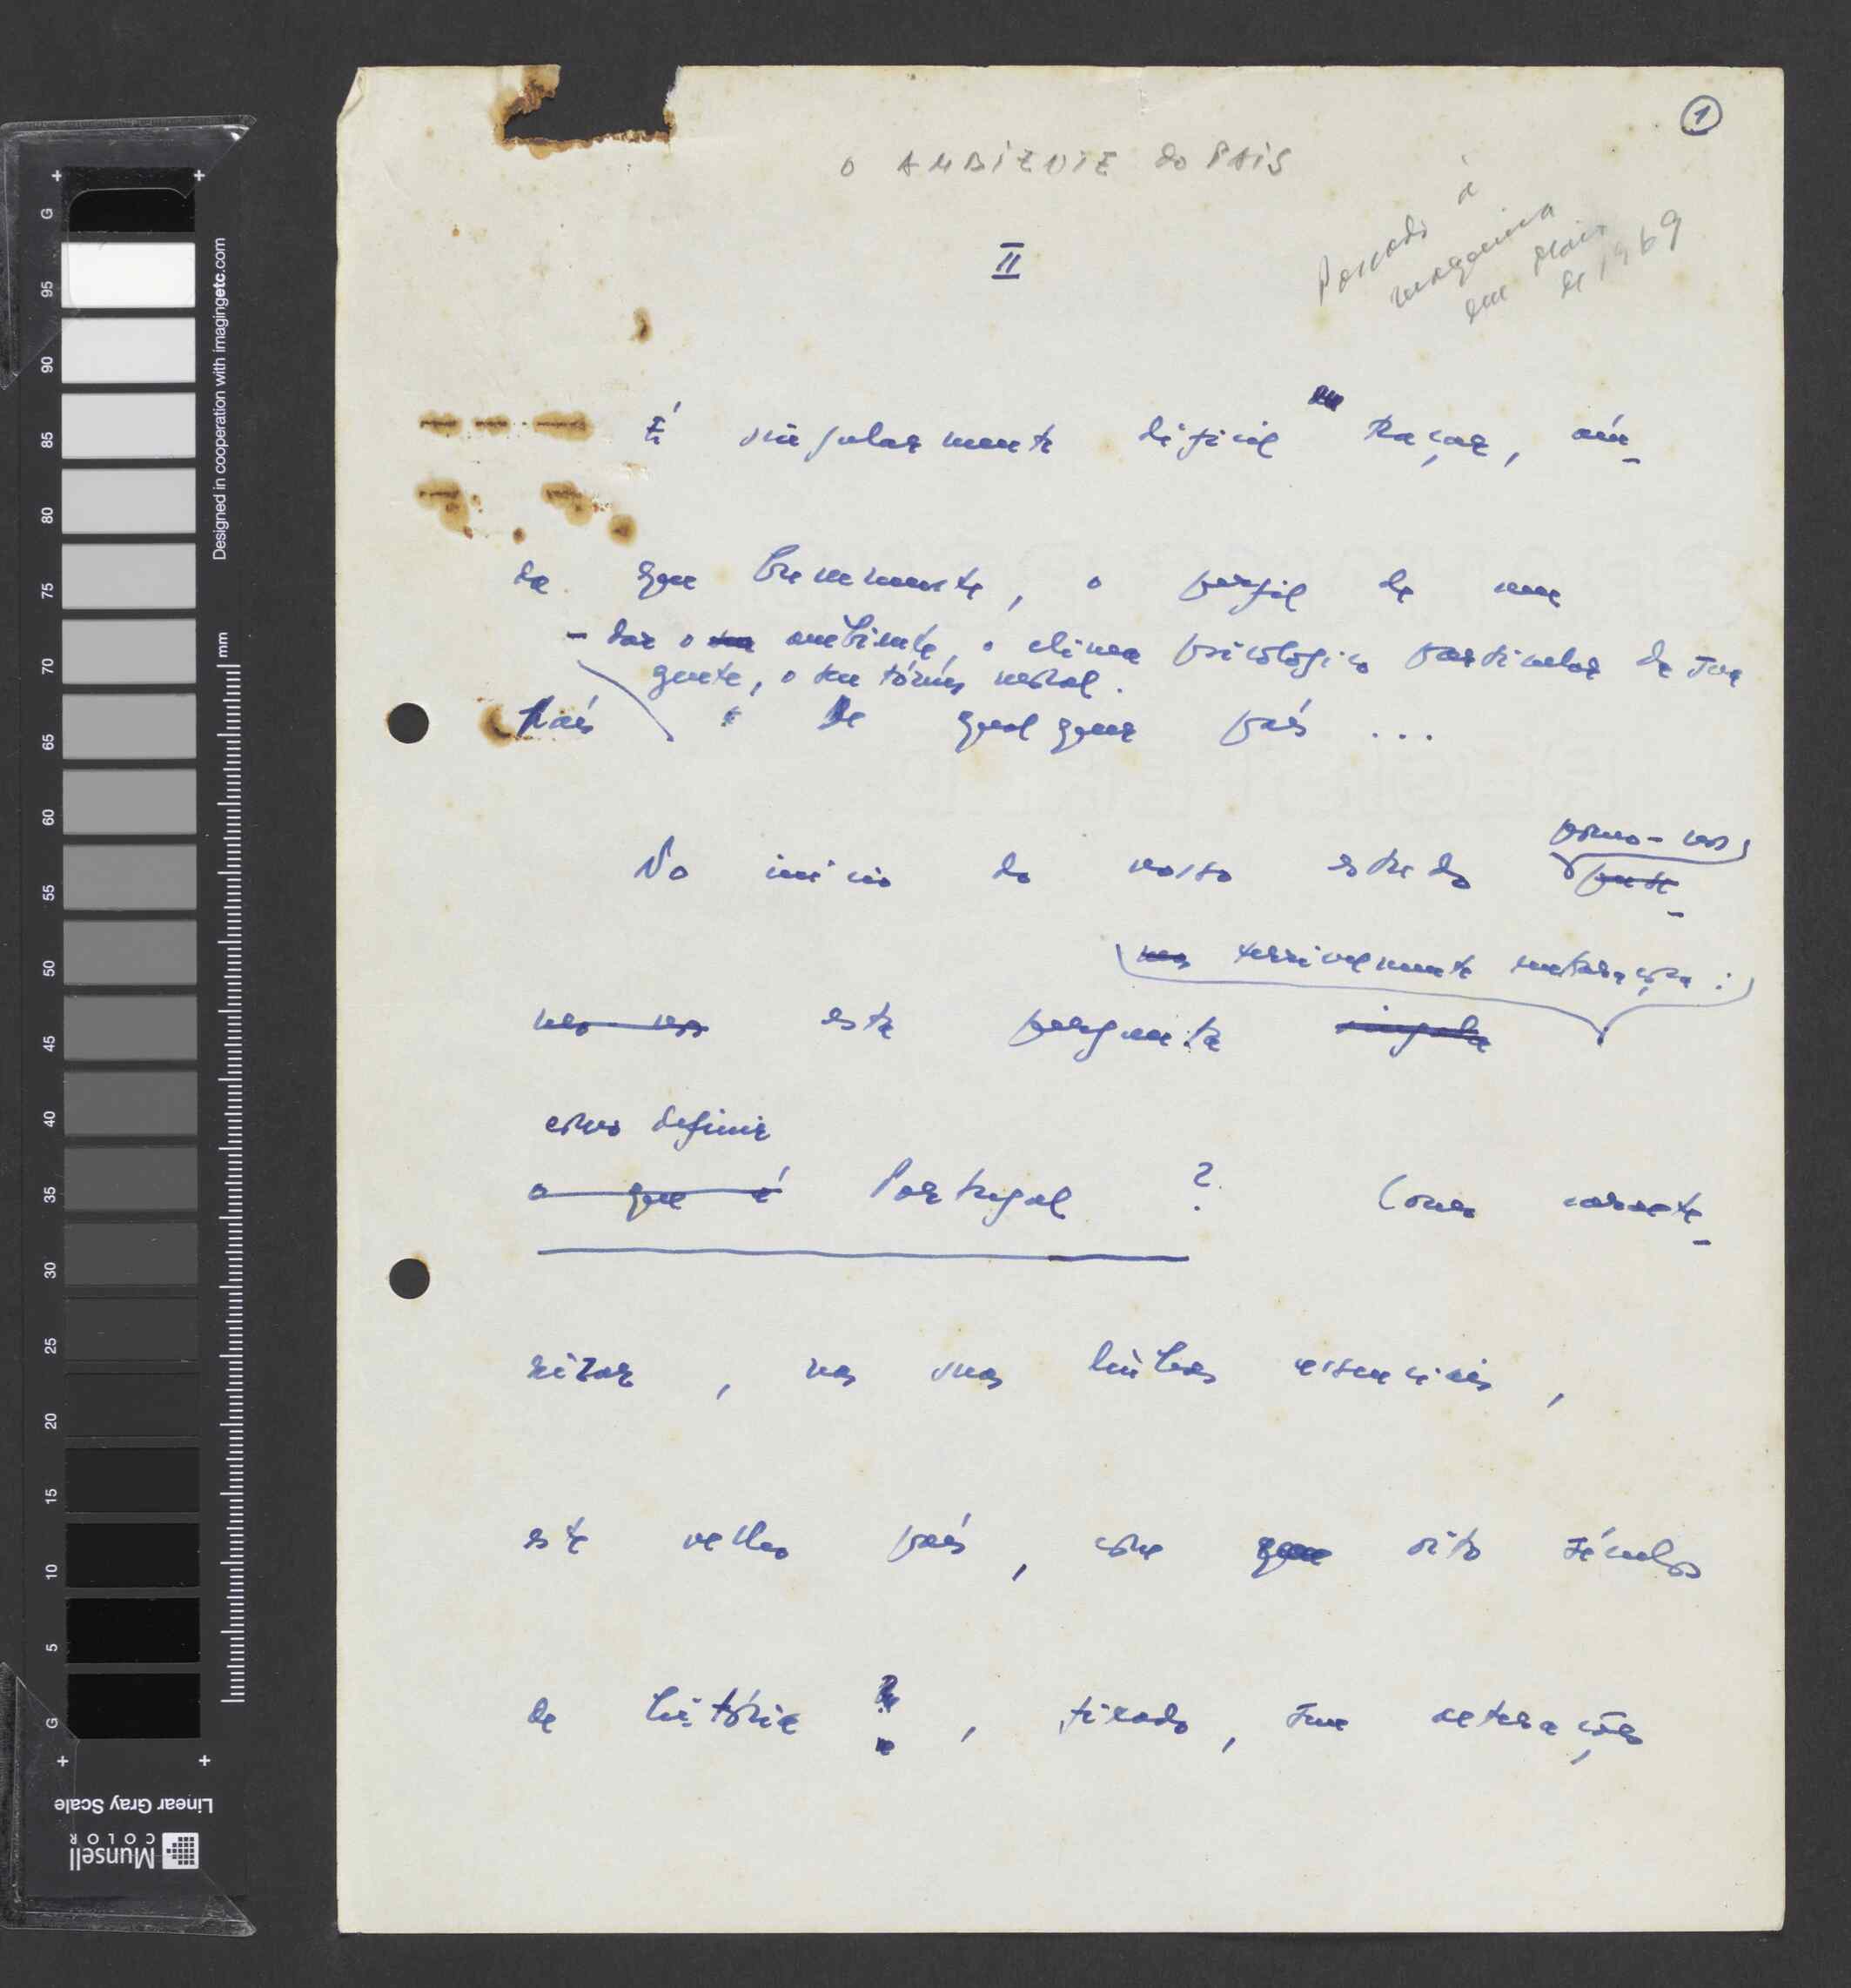 1
O AMBIENTE do PAÍS
Passado à
maquina
em Maio
de 1969
II
É singularmente difícil traçar, ain-
da que brevemente, o perfil de um
- dar o ambiente, o clima psicológico particular da sua
gente, o seu tónus moral.
país de qualquer país ...
No início do nosso estudo pomo-nos
terrivelmente embaraçosa :
esta pergunta
como definir
o que é Portugal ? Como caracte-
rizar, nas suas linhas essenciais,
este velho país, com oito séculos
de história, fixado, sem alterações
Designed in cooperation with imagingetc.com
mm
G
95
90
85
80
75
70
65
60
55
50
45
40
35
30
25
20
15
10
5
G
Linear Gray Scale
Munsell
COLOR